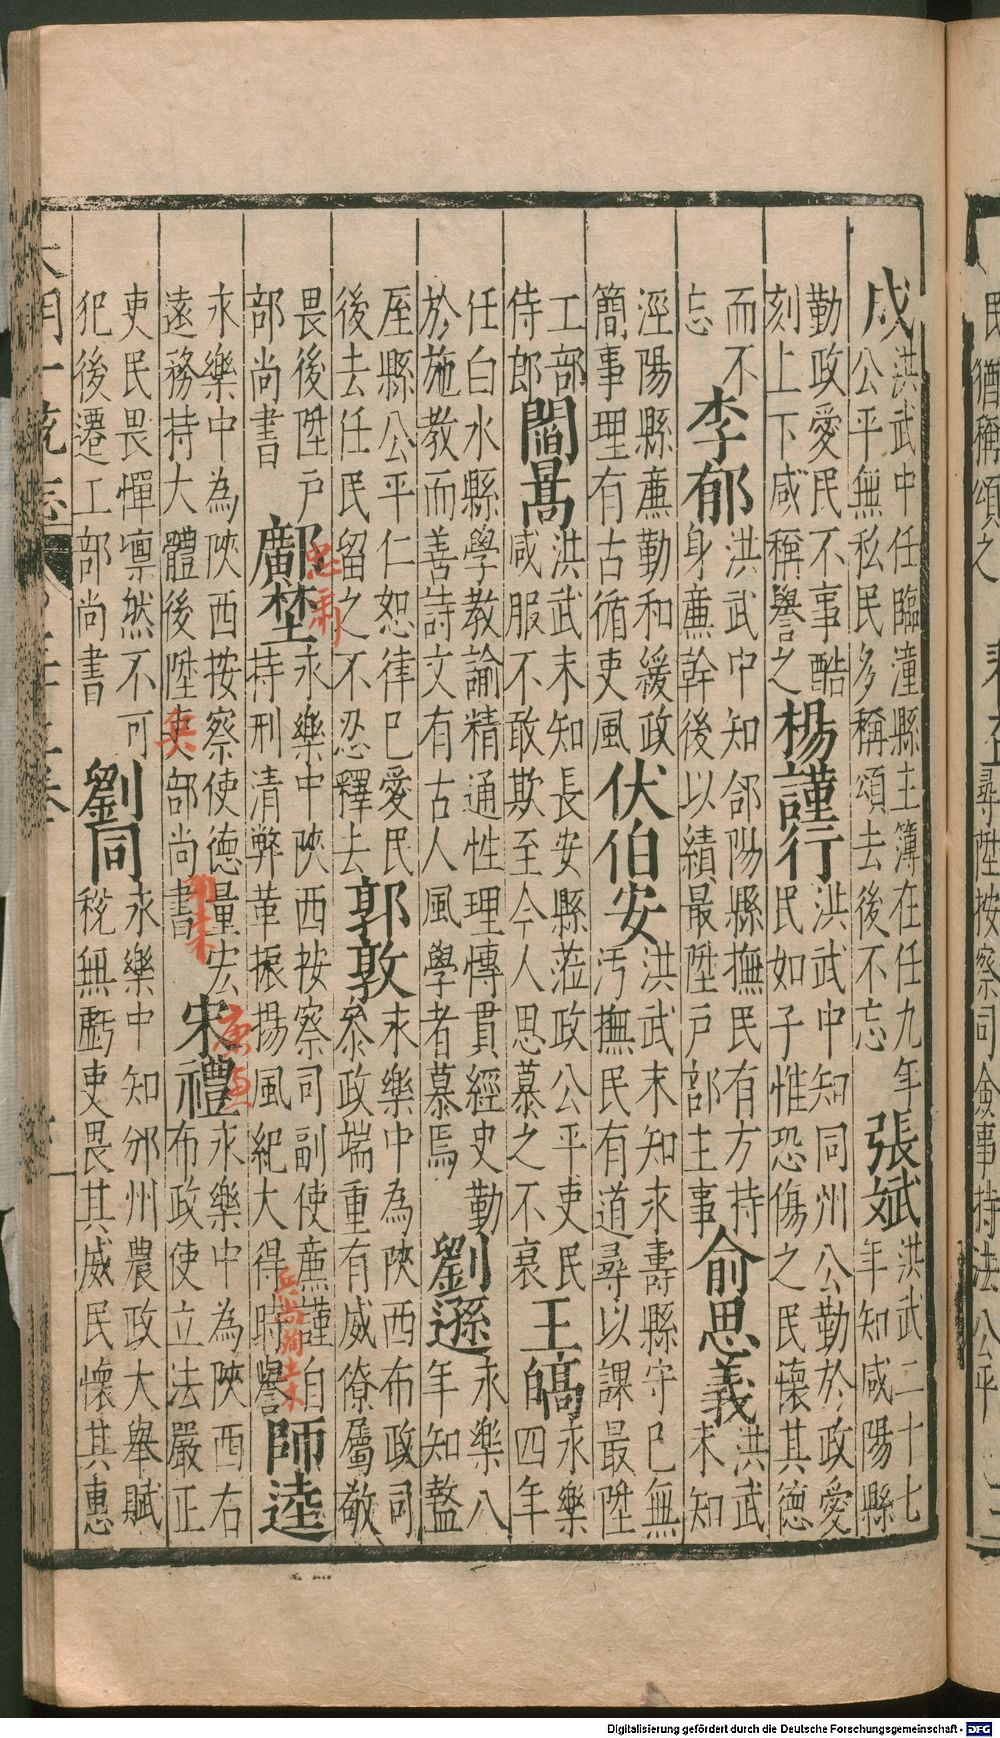 民猶稱頌之
尋陞按察司僉事持法公平
戍
洪武中任臨潼縣主簿在任九年
公平無私民多稱頌去後不忘
張斌
洪武二十七
年知咸陽縣
勤政愛民不事酷
刻上下咸稱譽之
楊謹行
洪武中知同州公勤於政愛
民如子惟恐傷之民懷其德
而不
忘
李郁
洪武中知郃陽縣撫民有方持
身廉幹後以績最陞戶部主事
俞思義
洪武
末知
涇陽縣廉勤和緩政
簡事理有古循吏風
伏伯安
洪武末知永壽縣守已無
汚撫民有道尋以課最陞
工部
侍郎
閻暠
洪武末知長安縣蒞政公平吏民
咸服不敢欺至今人思慕之不衰
王皜
永樂
四年
任白水縣學教諭精通性理慱貫經史勤
於施教而善詩文有古人風學者慕焉
劉遜
永樂八
年知盩
厔縣公平仁恕律已愛民
後去任民留之不忍釋去
郭敦
永樂中為陜西布政司
叅政端重有威僚屬敬
畏後陞戶
部尚書
鄺埜
忠肅
永樂中陜西按察司副使廉謹自
持刑清弊革振揚風紀大得時譽
兵尚殉土木
師逵
永樂中為陜西按察使德量宏
遠務持大體後陞吏部尚書
兵
宋禮
永樂中為陜西右
布政使立法嚴正
吏民畏憚凛然不可
犯後遷工部尚書
劉同
永樂中知邠州農政大舉賦
稅無虧吏畏其威民懷其惠
大明一統志
Digitalisierung gefördert durch die Deutsche Forschungsgemeinschaft - DFG